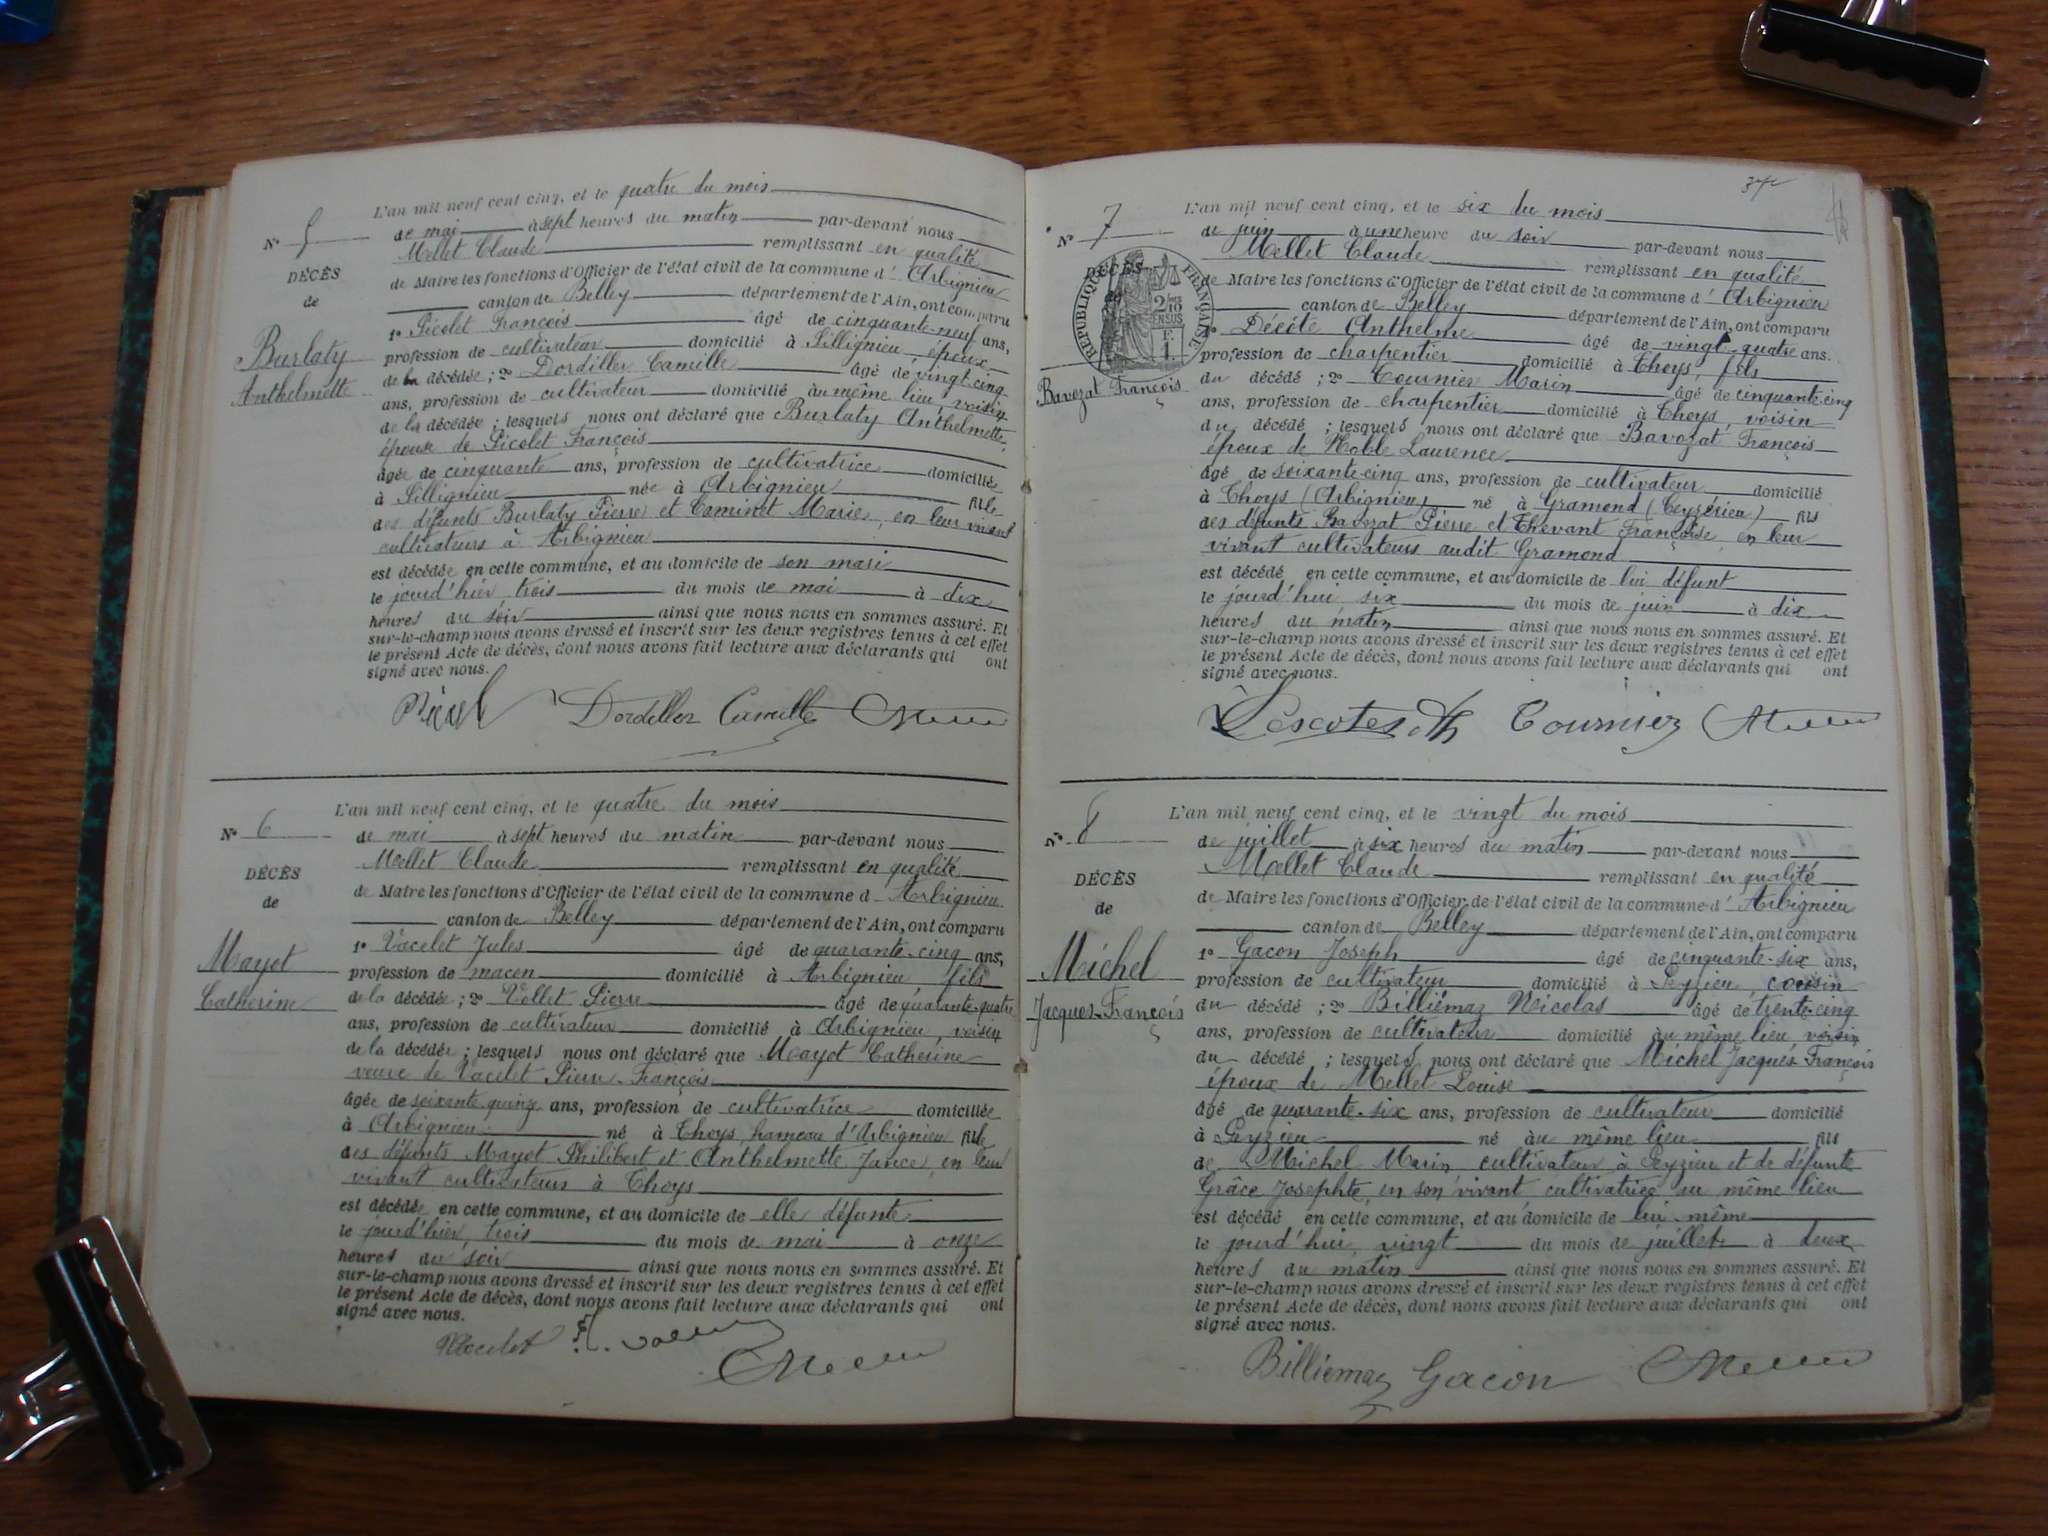 L'an mil neuf cent cinq, et le quatre du mois
N° 5
de mai à sept heures du matin par-devant nous
Mellet Claude remplissant en qualité
DÉCÈS
de Maire les fonctions d'Officier de l'état civil de la commune d' Arbignieu
de
canton de Belley département de l'Ain, ont comparu
1° Picolet François âgé de cinquante-neuf ans,
Burlaty
profession de cultivateur domicilié à Sillignieu, époux
Anthelmette
de la décédée ; 2° Dordiller Camille âgé de vingt-cinq
ans, profession de cultivateur domicilié au même lieu, voisin
de la décédée ; lesquels nous ont déclaré que Burlaty Anthelmette
épouse de Picolet François
âgée de cinquante ans, profession de cultivatrice domiciliée
à Sillignieu née à Arbignieu fille
des défunts Burlaty Pierre et Caminet Marie, en leur vivant
cultivateurs à Arbignieu
est décédée en cette commune, et au domicile de son mari
le jourd'hier trois du mois de mai à dix
heures du soir ainsi que nous nous en sommes assuré. Et
sur-le-champ nous avons dressé et inscrit sur les deux registres tenus à cet effet
le présent Acte de décès, dont nous avons fait lecture aux déclarants qui ont
signé avec nous.
Dordiller Camille
L'an mil neuf cent cinq, et le quatre du mois
N° 6
de mai à sept heures du matin par-devant nous
Mellet Claude remplissant en qualité
DÉCÈS
de Maire les fonctions d'Officier de l'état civil de la commune d Arbignieu
de
canton de Belley département de l'Ain, ont comparu
1° Vacelet Jules âgé de quarante-cinq ans,
Mayot
profession de maçon domicilié à Arbignieu fils
Catherine
de la décédée ; 2° Vollet Pierre âgé de quarante-quatre
ans, profession de cultivateur domicilié à Arbignieu, voisin
de la décédée ; lesquels nous ont déclaré que Mayot Catherine
veuve de Vacelet Pierre-François
âgée de soixante quinze ans, profession de cultivatrice domiciliée
à Arbignieu né à Thoys, hameau d'Arbignieu fille
des défunts Mayot Philibert et Anthelmette Jance, en leur
vivant cultivateurs à Thoys
est décédée en cette commune, et au domicile de elle défunte
le jourd'hier, trois du mois de mai à onze
heures du soir ainsi que nous nous en sommes assuré. Et
sur-le-champ nous avons dressé et inscrit sur les deux registres tenus à cet effet
le présent Acte de décès, dont nous avons fait lecture aux déclarants qui ont
signé avec nous.
Vacelet
L'an mil neuf cent cinq, et le six du mois
N° 7
de juin à une heure du soir par-devant nous
Mellet Claude remplissant en qualité
DÉCÈS
RÉPUBLIQUE FRANÇAISE
de Maire les fonctions d'Officier de l'état civil de la commune d' Arbignieu
de
canton de Belley département de l'Ain, ont comparu
1° Anthelme âgé de vingt-quatre ans.
profession de charpentier domicilié à Thoys, fils
Bavozat François
du décédé ; 2° Tournier Marin âgé de cinquante-cinq
ans, profession de charpentier domicilié à Thoys, voisin
du décédé ; lesquels nous ont déclaré que Bavozat François
époux de Noble Laurence
âgé de soixante-cinq ans, profession de cultivateur domicilié
à Thoys (Arbignieu) né à Gramond (Ceyzérieu) fils
des défunts Bavozat Pierre et Thevant Françoise, en leur
vivant cultivateurs audit Gramond
est décédé en cette commune, et au domicile de lui défunt
le jourd'hui six du mois de juin à dix
heures du matin ainsi que nous nous en sommes assuré. Et
sur-le-champ nous avons dressé et inscrit sur les deux registres tenus à cet effet
le présent Acte de décès, dont nous avons fait lecture aux déclarants qui ont
signé avec nous.
Tournier
L'an mil neuf cent cinq, et le vingt du mois
N° 8
de juillet à six heures du matin par-devant nous
Mellet Claude remplissant en qualité
DÉCÈS
de Maire les fonctions d'Officier de l'état civil de la commune d' Arbignieu
de
canton de Belley département de l'Ain, ont comparu
1° Gacon Joseph âgé de cinquante-six ans,
Michel
profession de cultivateur domicilié à Peyzieu, cousin
Jacques-François
du décédé ; 2° Billiémaz Nicolas âgé de trente-cinq
ans, profession de cultivateur domicilié au même lieu, voisin
du décédé ; lesquels nous ont déclaré que Michel Jacques-François
époux de Mellet Louise
âgé de quarante-six ans, profession de cultivateur domicilié
à Peyzieu né au même lieu fils
de Michel Marin, cultivateur à Peyzieu et de défunte
Grâce Josephte, en son vivant cultivatrice au même lieu
est décédé en cette commune, et au domicile de lui-même
le jourd'hui, vingt du mois de juillet à deux
heures du matin ainsi que nous nous en sommes assuré. Et
sur-le-champ nous avons dressé et inscrit sur les deux registres tenus à cet effet
le présent Acte de décès, dont nous avons fait lecture aux déclarants qui ont
signé avec nous.
Billiemaz Gacon